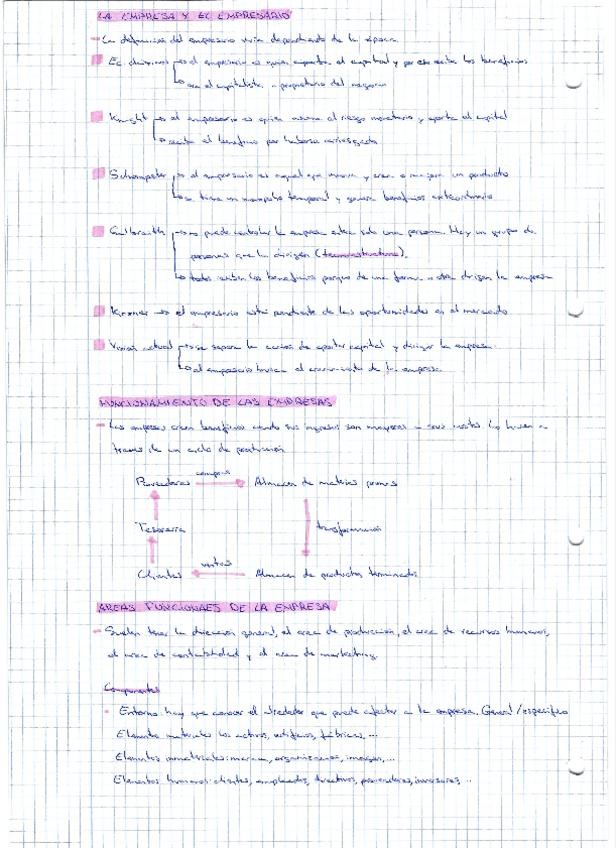 LA EMPRESA Y EL EMPRESARIO
- La definición del empresario varía dependiendo de la época.
El clasicismo → el empresario es quien aporta el capital y por ello recibe los beneficios
→ era el capitalista propietario del negocio
Knight → el empresario es quien asume el riesgo monetario y aporta el capital
→ recibe el beneficio por haberse arriesgado
Schumpeter → el empresario es aquel que innova y crea o mejora un producto
→ se tiene un monopolio temporal y genera beneficios extraordinarios
Galbraith → no puede controlar la empresa entera solo una persona. Hay un grupo de
personas que la dirigen (tecnoestructura).
→ todos reciben los beneficios porque de una forma u otra dirigen la empresa
Kirzner → el empresario está pendiente de las oportunidades en el mercado
Versión actual → se separa la acción de aportar capital y dirigir la empresa.
→ el empresario busca el crecimiento de la empresa
FUNCIONAMIENTO DE LAS EMPRESAS
- Las empresas crean beneficios cuando sus ingresos son mayores a sus costes. Lo hacen a
través de un ciclo de producción
Proveedores compras → Almacén de materias primas
Tesorería transformación
Clientes ventas ← Almacén de productos terminados
AREAS FUNCIONAES DE LA EMPRESA
- Suelen tener la dirección general, el area de producción, el area de recursos humanos,
el area de contabilidad y el area de marketing.
Componentes
- Entorno hay que conocer el alrededor que puede afectar a la empresa. General/específico
Elementos materiales: los activos, edificios, fábricas, ...
Elementos inmateriales: marca, organización, imagen, ...
Elementos humanos: clientes, empleados, directivos, proveedores, inversores, ..